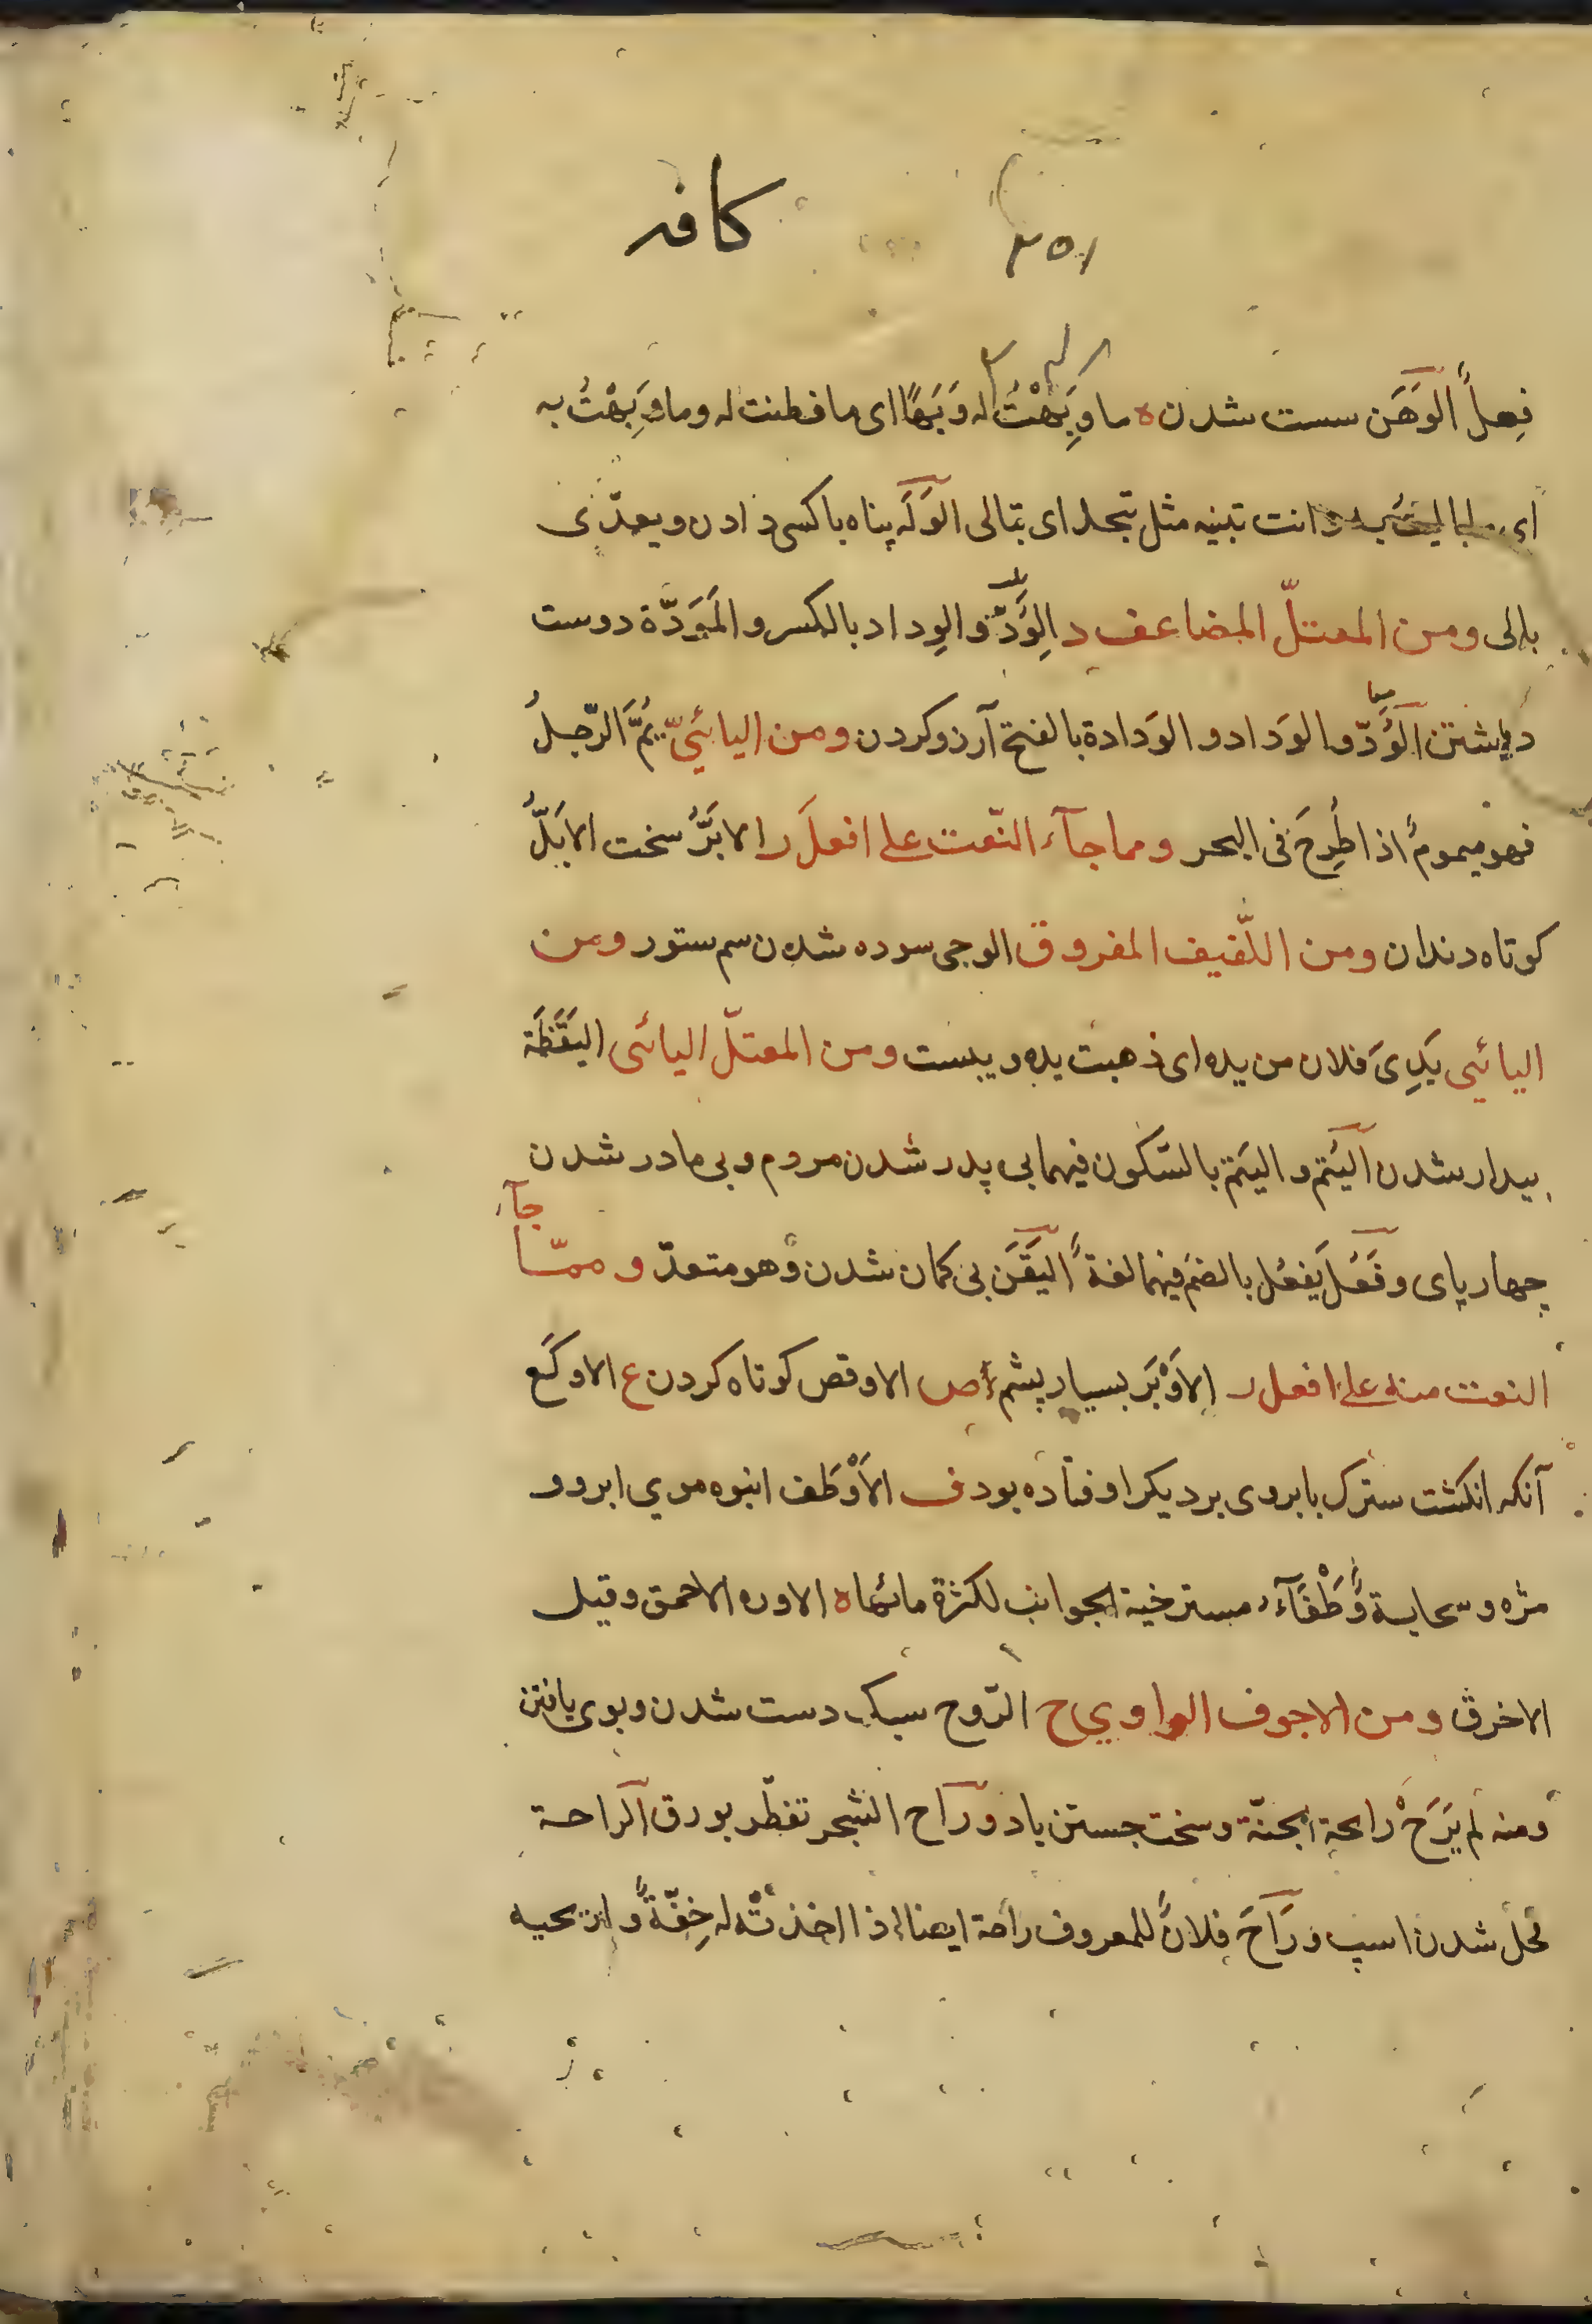 کافه
۳۵۱
فِعلاً الوَهَن سست شدن ه ما وَبِهْتُ له وَبَهًا ای ما فطنت له وما وَبِهْتُ به
ای وانت تبنیه مثل تیجل ای تبالی الوَلَه پناه باکسی دادن ویعدّی
بإلی ومن المعتلّ المضاعف د الوِدّ والوِداد بالکسر والمَوَدّة دوست
داشتن الوَدّ والوَداد والوَدادة بالفتح آرزو کردن ومن الیائیّ یُمَّ الرّجلُ
فهو میمومٌ اذا طُرِحَ فی البحر ومما جآء النّعت علی افعلَ ر الابَرُّ سخت الابَلُّ
کوتاه دندان ومن اللّفیف المفروق الوجی سوده شدن سم ستور ومن
الیائیی یَدِیَ فلان من یده ای ذهبت یده ویبست ومن المعتلّ الیائی الیَقَظَة
بیدار شدن الیَتَم والیتم بالسّکون فیهما بی پدر شدن مردم وبی مادر شدن
چهار پای وفَعَلَ یَفعُل بالضم فیهما لغةً الیَقَن بی کمان شدن وهو متعدّ وممّا جآء
النعت منه علی افعل ر الاَوْبَر بسیار پشم ص الاوقص کوتاه کردن ع الاوکَع
آنکه انکشت سترک بابروی بر دیکر اوفتاده بود ف الاَوْطَف انبوه موی ابرو و
مژه وسحابة وَطْفَآء مسترخیة الجوانب لکثرة مائها ه الاوره الاحمق وقیل
الاخرق ومن الاجوف الواوی ح الرّوح سبک دست شدن وبوی یافتن
ومنه لم یَرَحْ رایحة الجنّة وسخت جستن باد وراح الشجر تفطّر بورق الراحة
فحل شدن اسب ورَاحَ فلانٌ للمعروف راحة ایضا اذا اخذتْه له خِفّةٌ واریحیه